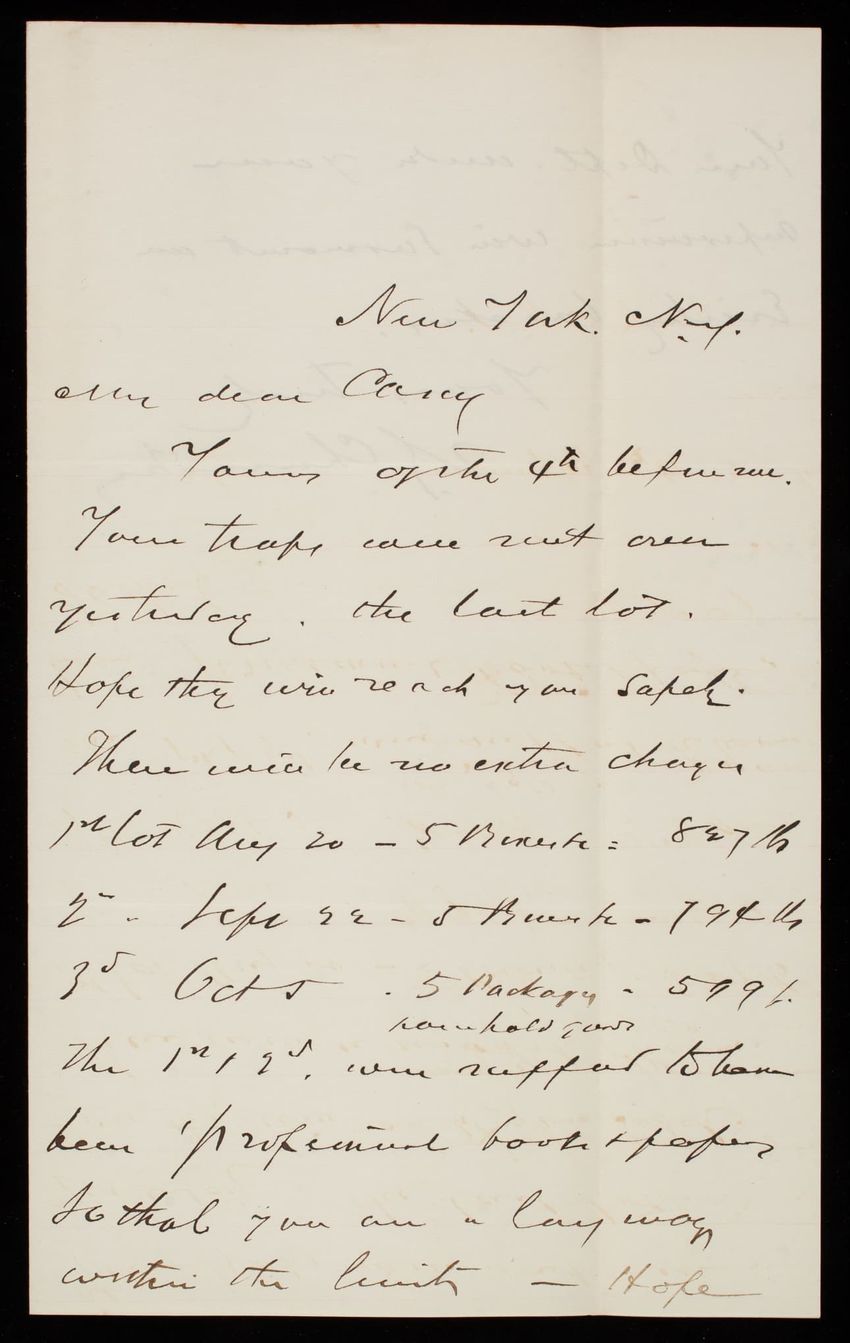 New York. N.Y.
My dear Casey
Yours of the 4th before me.
Your traps were sent over
yesterday. the last lot.
Hope they will reach you safely.
There will be no extra charges
1st lot Aug 20 - 5 Boxes = 827 lb
2d " Sept 22 - 5 Boxes - 794 lb
3d Oct 5 - 5 Packages - 599 lb.
household goods
The 1st & 2d, were supposed to have
been "professional books & papers
so that you are a long way
within the limits — Hope